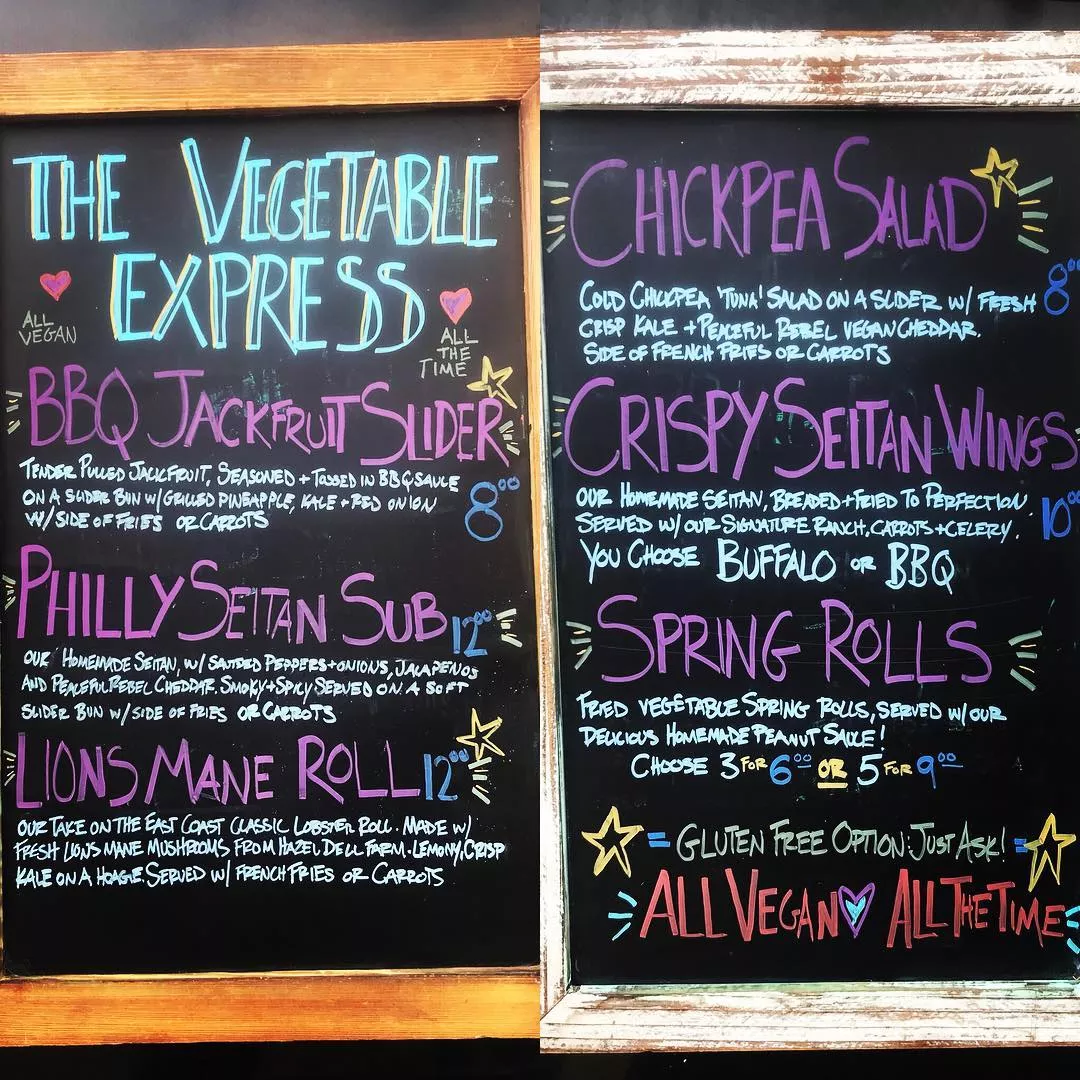 THE VEGETABLE
EXPRESS
ALL
VEGAN
ALL
THE
TIME
BBQ JACKFRUIT SLIDER
TENDER PULLED JACKFRUIT, SEASONED + TOSSED IN BBQ SAUCE
ON A SLIDER BUN W/GRILLED PINEAPPLE, KALE + RED ONION
W/SIDE OF FRIES OR CARROTS
8⁰⁰
PHILLY SEITAN SUB 12⁰⁰
OUR HOMEMADE SEITAN, W/ SAUTEED PEPPERS+ONIONS, JALAPENOS
AND PEACEFUL REBEL CHEDDAR. SMOKY+SPICY SERVED ON A SOFT
SLIDER BUN W/SIDE OF FRIES OR CARROTS
LIONS MANE ROLL 12⁰⁰
OUR TAKE ON THE EAST COAST CLASSIC LOBSTER ROLL. MADE W/
FRESH LIONS MANE MUSHROOMS FROM HAZEL DELL FARM. LEMONY, CRISP
KALE ON A HOAGIE. SERVED W/ FRENCH FRIES OR CARROTS
CHICKPEA SALAD
8⁰⁰
COLD CHICKPEA 'TUNA' SALAD ON A SLIDER W/ FRESH
CRISP KALE + PEACEFUL REBEL VEGAN CHEDDAR.
SIDE OF FRENCH FRIES OR CARROTS
CRISPY SEITAN WINGS
OUR HOMEMADE SEITAN, BREADED+FRIED TO PERFECTION.
SERVED W/ OUR SIGNATURE RANCH, CARROTS+CELERY.
10⁰⁰
YOU CHOOSE BUFFALO OR BBQ
SPRING ROLLS
FRIED VEGETABLE SPRING ROLLS, SERVED W/ OUR
DELICIOUS HOMEMADE PEANUT SAUCE!
CHOOSE 3 FOR 6⁰⁰ OR 5 FOR 9⁰⁰
= GLUTEN FREE OPTION: JUST ASK! =
ALL VEGAN ALL THE TIME